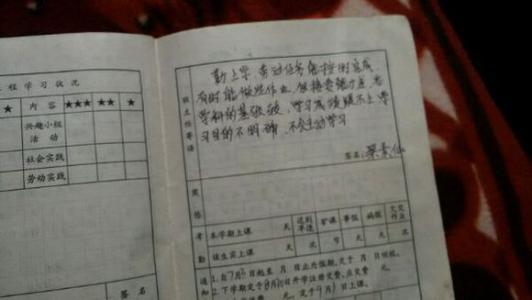 程学习状况
★ 内容 ★★★ ★★ ★
兴趣小组
活动
社会实践
劳动实践
签名
班主任寄语
勤上学,劳动任务能按时完成
有时能做些作业,但接受能力差,各
学科的基础较差,学习成绩跟不上,学
习目的不明确,不会主动学习
签名:
奖惩
考勤
本学期上课 天 迟到早退 旷课 事假 病假
该生实上课 天 次 节 天 天 次
通知
1.自7月 日起至 月 日止为假期,定于 月 日
2.下学期定于 月 日开学注册交费,应交费
元。 元,定于9月 日上课。